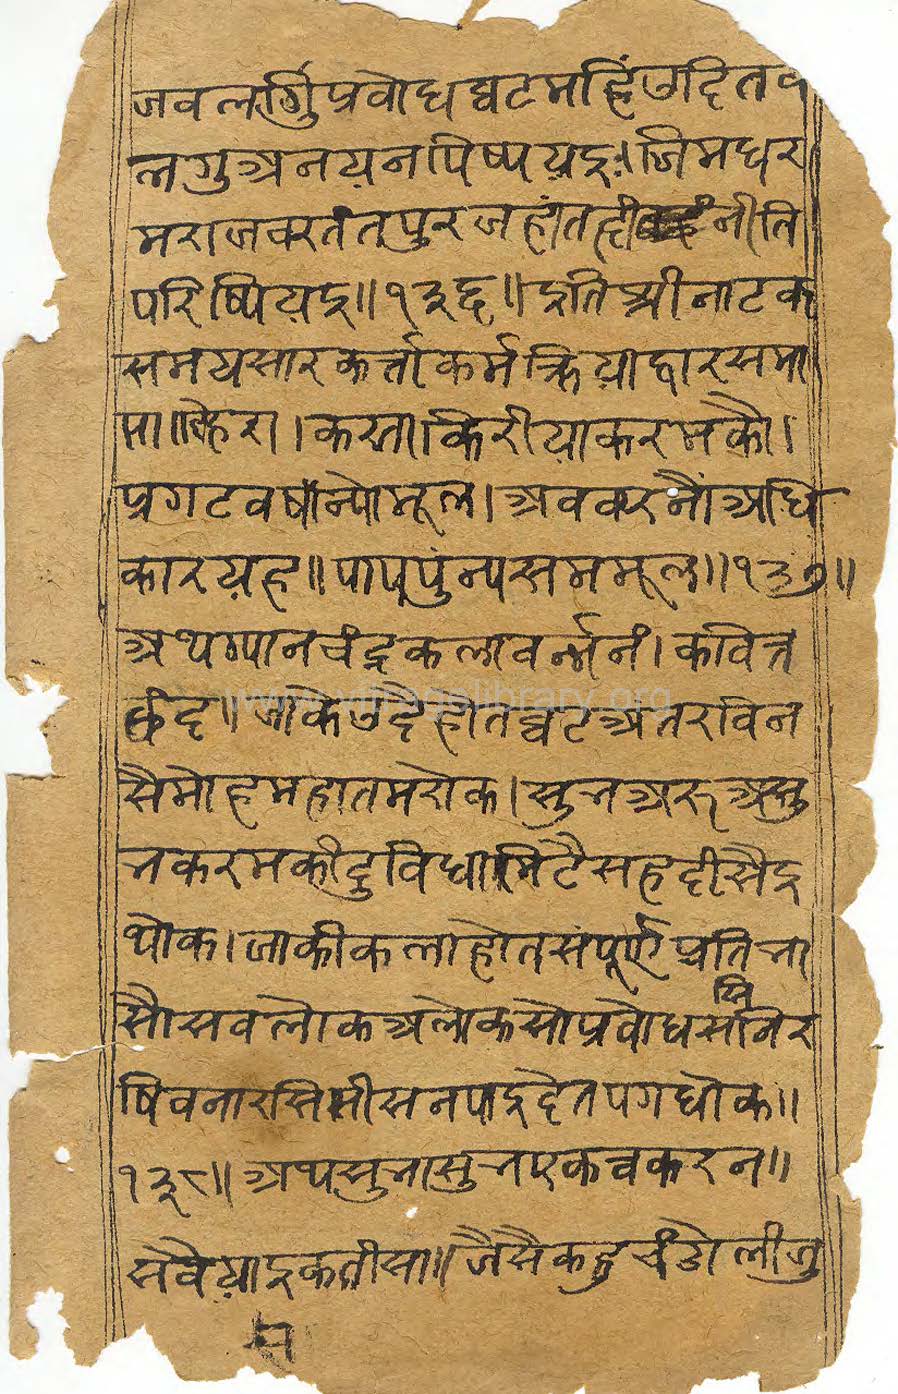 जवलगिप्रवोधघटमहिंउदितत
लगुअनयनपिष्षयइ॥जिमधर
मराजवरतंतपुरजहांतहीनीति
परिष्षियइ॥१३६॥इतिश्रीनाटक
समयसारकर्त्ताकर्मक्रियाद्वारसमा
पा॥दोहरा।करताकिरीयाकरमकौ।
प्रगटवषान्योमूल।अववरनौंअधि
कारयह॥पापपुंन्यसममूल॥१३७॥
अथग्यानचंद्रकलावर्न्ननं।कवित्त
छंद॥जाकेउदैहोतघटअंतरविन
सैमोहमहातमरोक।सुभअरूअसु
भकरमकीदुविधामिटैसहदीसैइ
थोक।जाकीकलाहोतसंपूर्णप्रतिभा
सैसवलोकअलोकसोप्रवोधससिनिर
षिवनारसिसीसनवाइदेतपगधोक॥
१३८॥अथसुभासुभएकत्वकरन॥
सवैयाइकतीसा॥जैसैकहुचंडालीजु
www.vitragelibrary.org